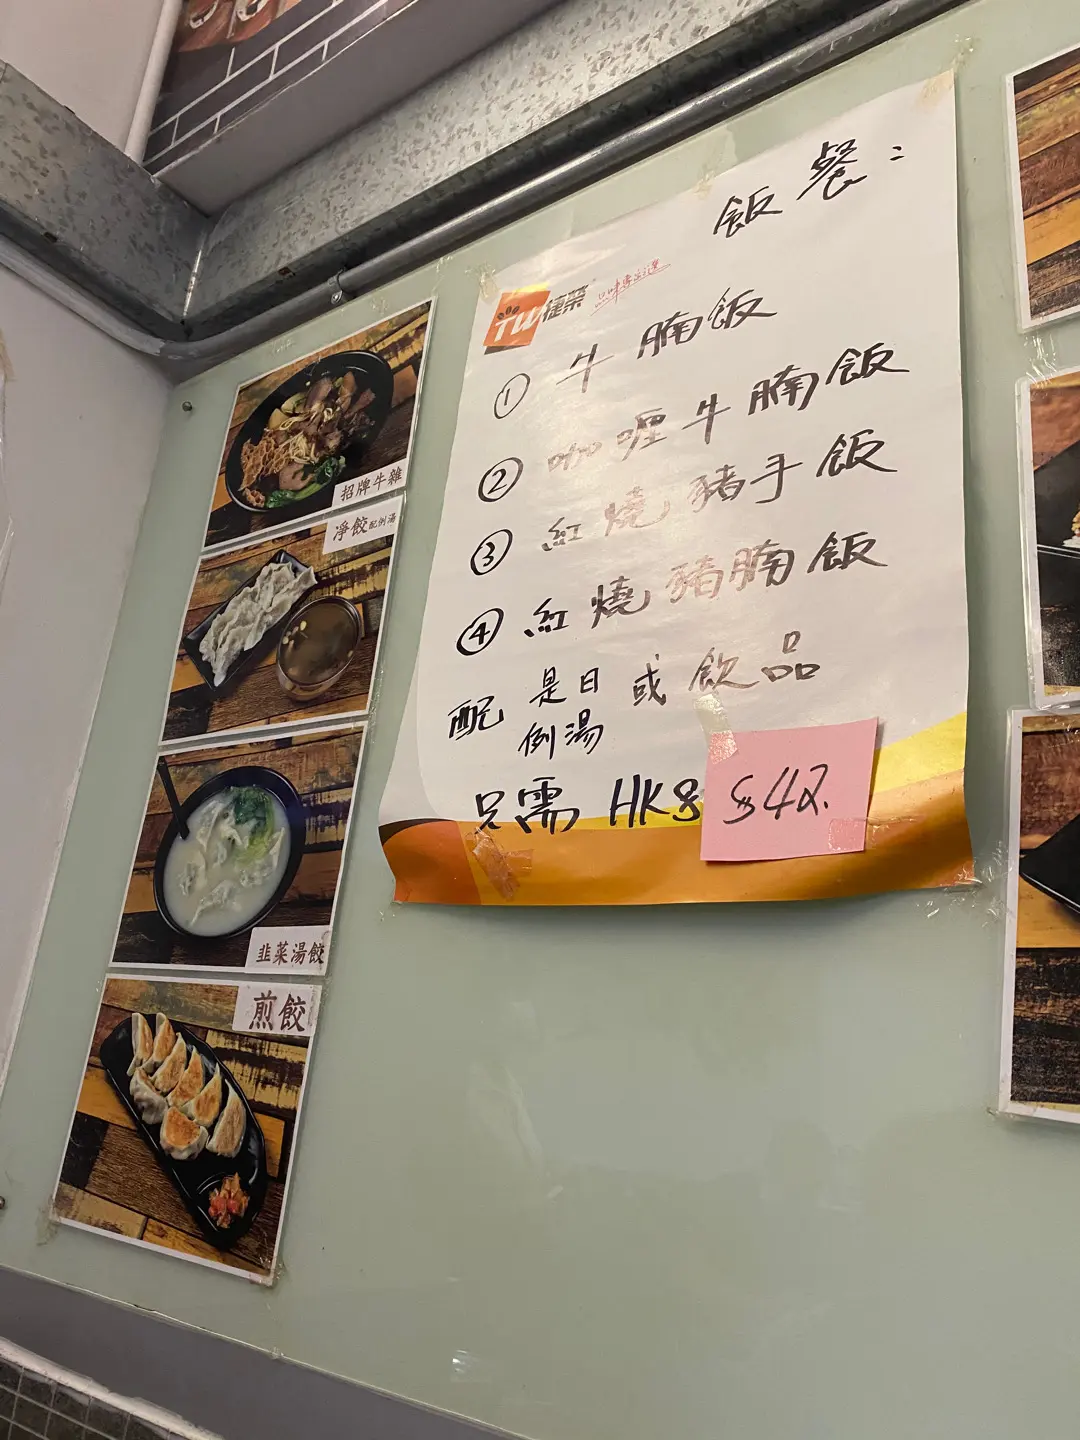 招牌牛雜
凈餃配例湯
韭菜湯餃
煎餃
飯餐:
TW捷榮
① 牛腩飯
② 咖喱牛腩飯
③ 紅燒豬手飯
④ 紅燒豬腩飯
配 是日例湯 或 飲品
只需 HK$ $42.